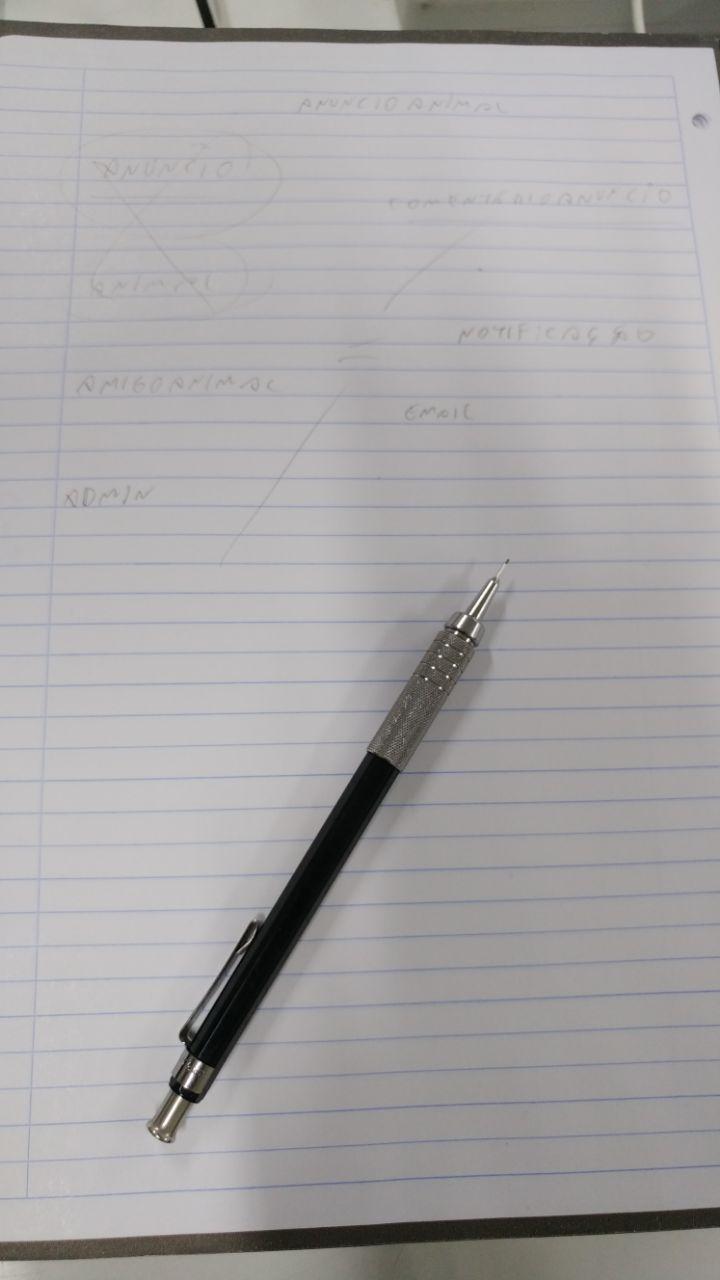 ANUNCIOANIMAL
ANUNCIO
COMENTARIOANUNCIO
ANIMAL
NOTIFICAÇÃO
AMIGOANIMAL
EMAIL
ADMIN